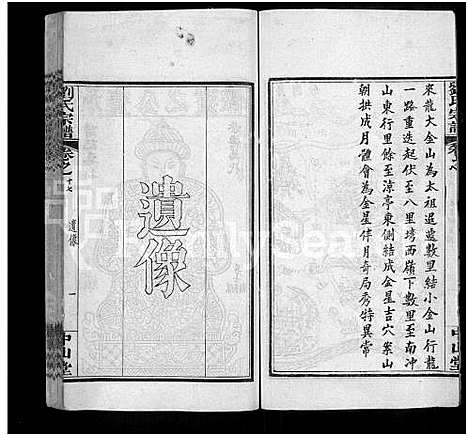 來龍大金山為太祖退遞數里結小金山行龍
一路重迭起伏至八里塆西嶺下數里至南冲
山東行里餘至涼亭東側結成金星吉穴案山
朝拱成月體會為金星伴月奇局秀特異常
遺像
劉氏宗譜
遺像
一
中山堂